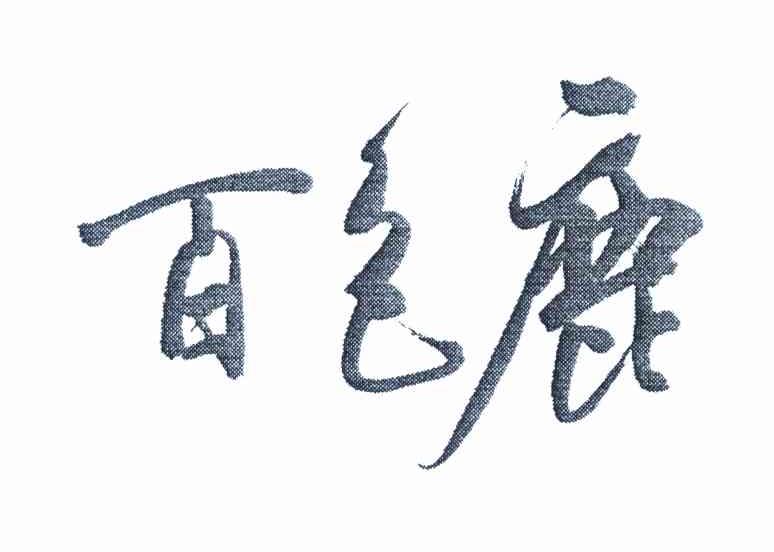 百色鹿